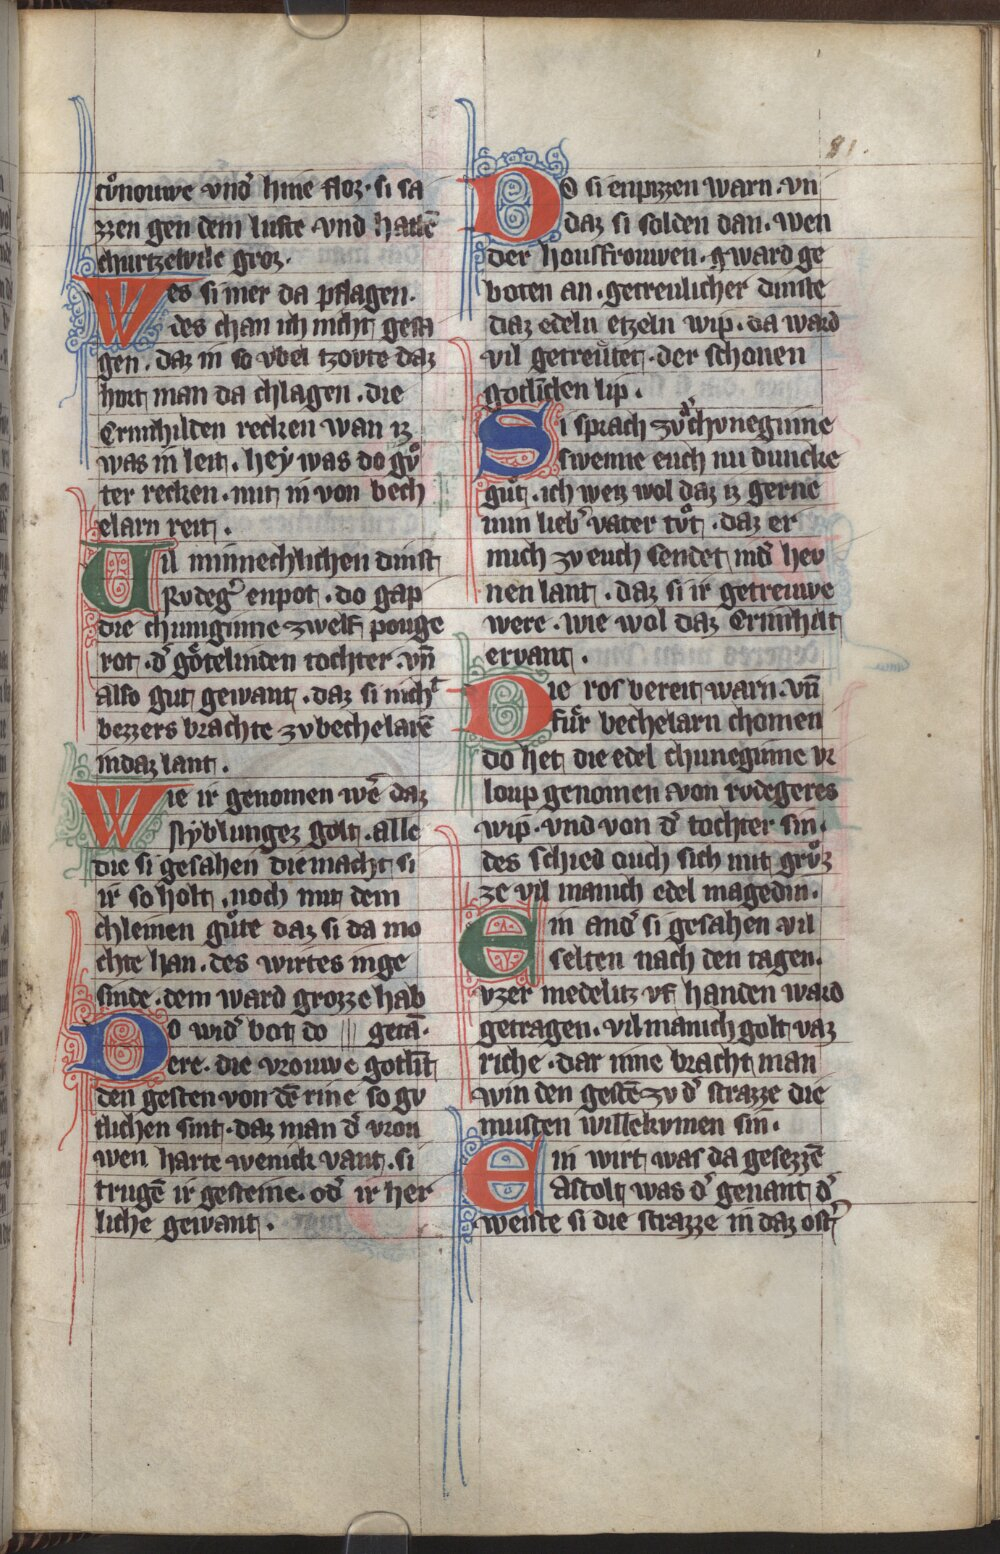 81.
tuͦnouwe vnd᾽ hine floz. si sa
zzen gen dem lufte. vnd hattē
churtzewile groz.
Wes si mer da pflagen.
des chan ich nicht gesa
gen. daz in so vbel tzovte daz
hort man da chlagen. die
Crimhilden recken wan iz
was in leit. hey was do guͦ
ter recken. mit in von bech
elarn reit.
Uil minnechlichen dinst
Rvdeg᾽ enpot. do gap
die chunnginne zwelf pouge
rot. d᾽ goͤtelinden tochter. vn̄
also gut gewant. daz si nicht
bezzers brachte zv bechelarē
in daz lant.
Wie ir genomen wē daz
Nyblungez golt. alle
die si gesahen die macht si
ir so holt. noch mit dem
chleinen guͦte daz si da mo
chte han. des wirtes inge
sinde. dem ward grozze hab
Do wid᾽ bot do getā.
ere. die vrouwe gotlīt
den gesten von dē rine so gv
tlichen sint. daz man d᾽ vrou
wen harte wenick vant. si
trugē ir gesteine. od᾽ ir her
liche gewant.
Do si enpizzen warn. vn
daz si solden dan. wen
der housfrouwen. q ward ge
boten an. getreulicher dinste
daz edeln etzeln wip. da ward
vil getreutet. der schonen
gotlīden lip.
Si sprach zv chvneginne
swenne euch nu duncke
guͦt. ich weiz wol daz iz gerne
min lieb᾽ vater tuͦt. daz er
mich zv euch sendet in d᾽ hev
nen lant. daz si ir getreuwe
were. wie wol daz Crimhilt
ervant.
Die ros bereit warn. vn̄
fuͤr bechelarn chomen
do het die edel chuneginne vr
loup genomen. von rvdegeres
wip. vnd von d᾽ tochter sin.
des schied ouch sich mit gruͦz
ze vil manich edel magedin.
Ein and᾽ si gesahen vil
selten nach den tagen.
vzer medelitz vf handen ward
getragen. vil manich golt vaz
riche. dar inne bracht man
win den gestē zv d᾽ strazze die
musten willekvmen sin.
Ein wirt was da gesezzē
Astolt was d᾽ genant d᾽
weiste si die strazze in daz ost᾽